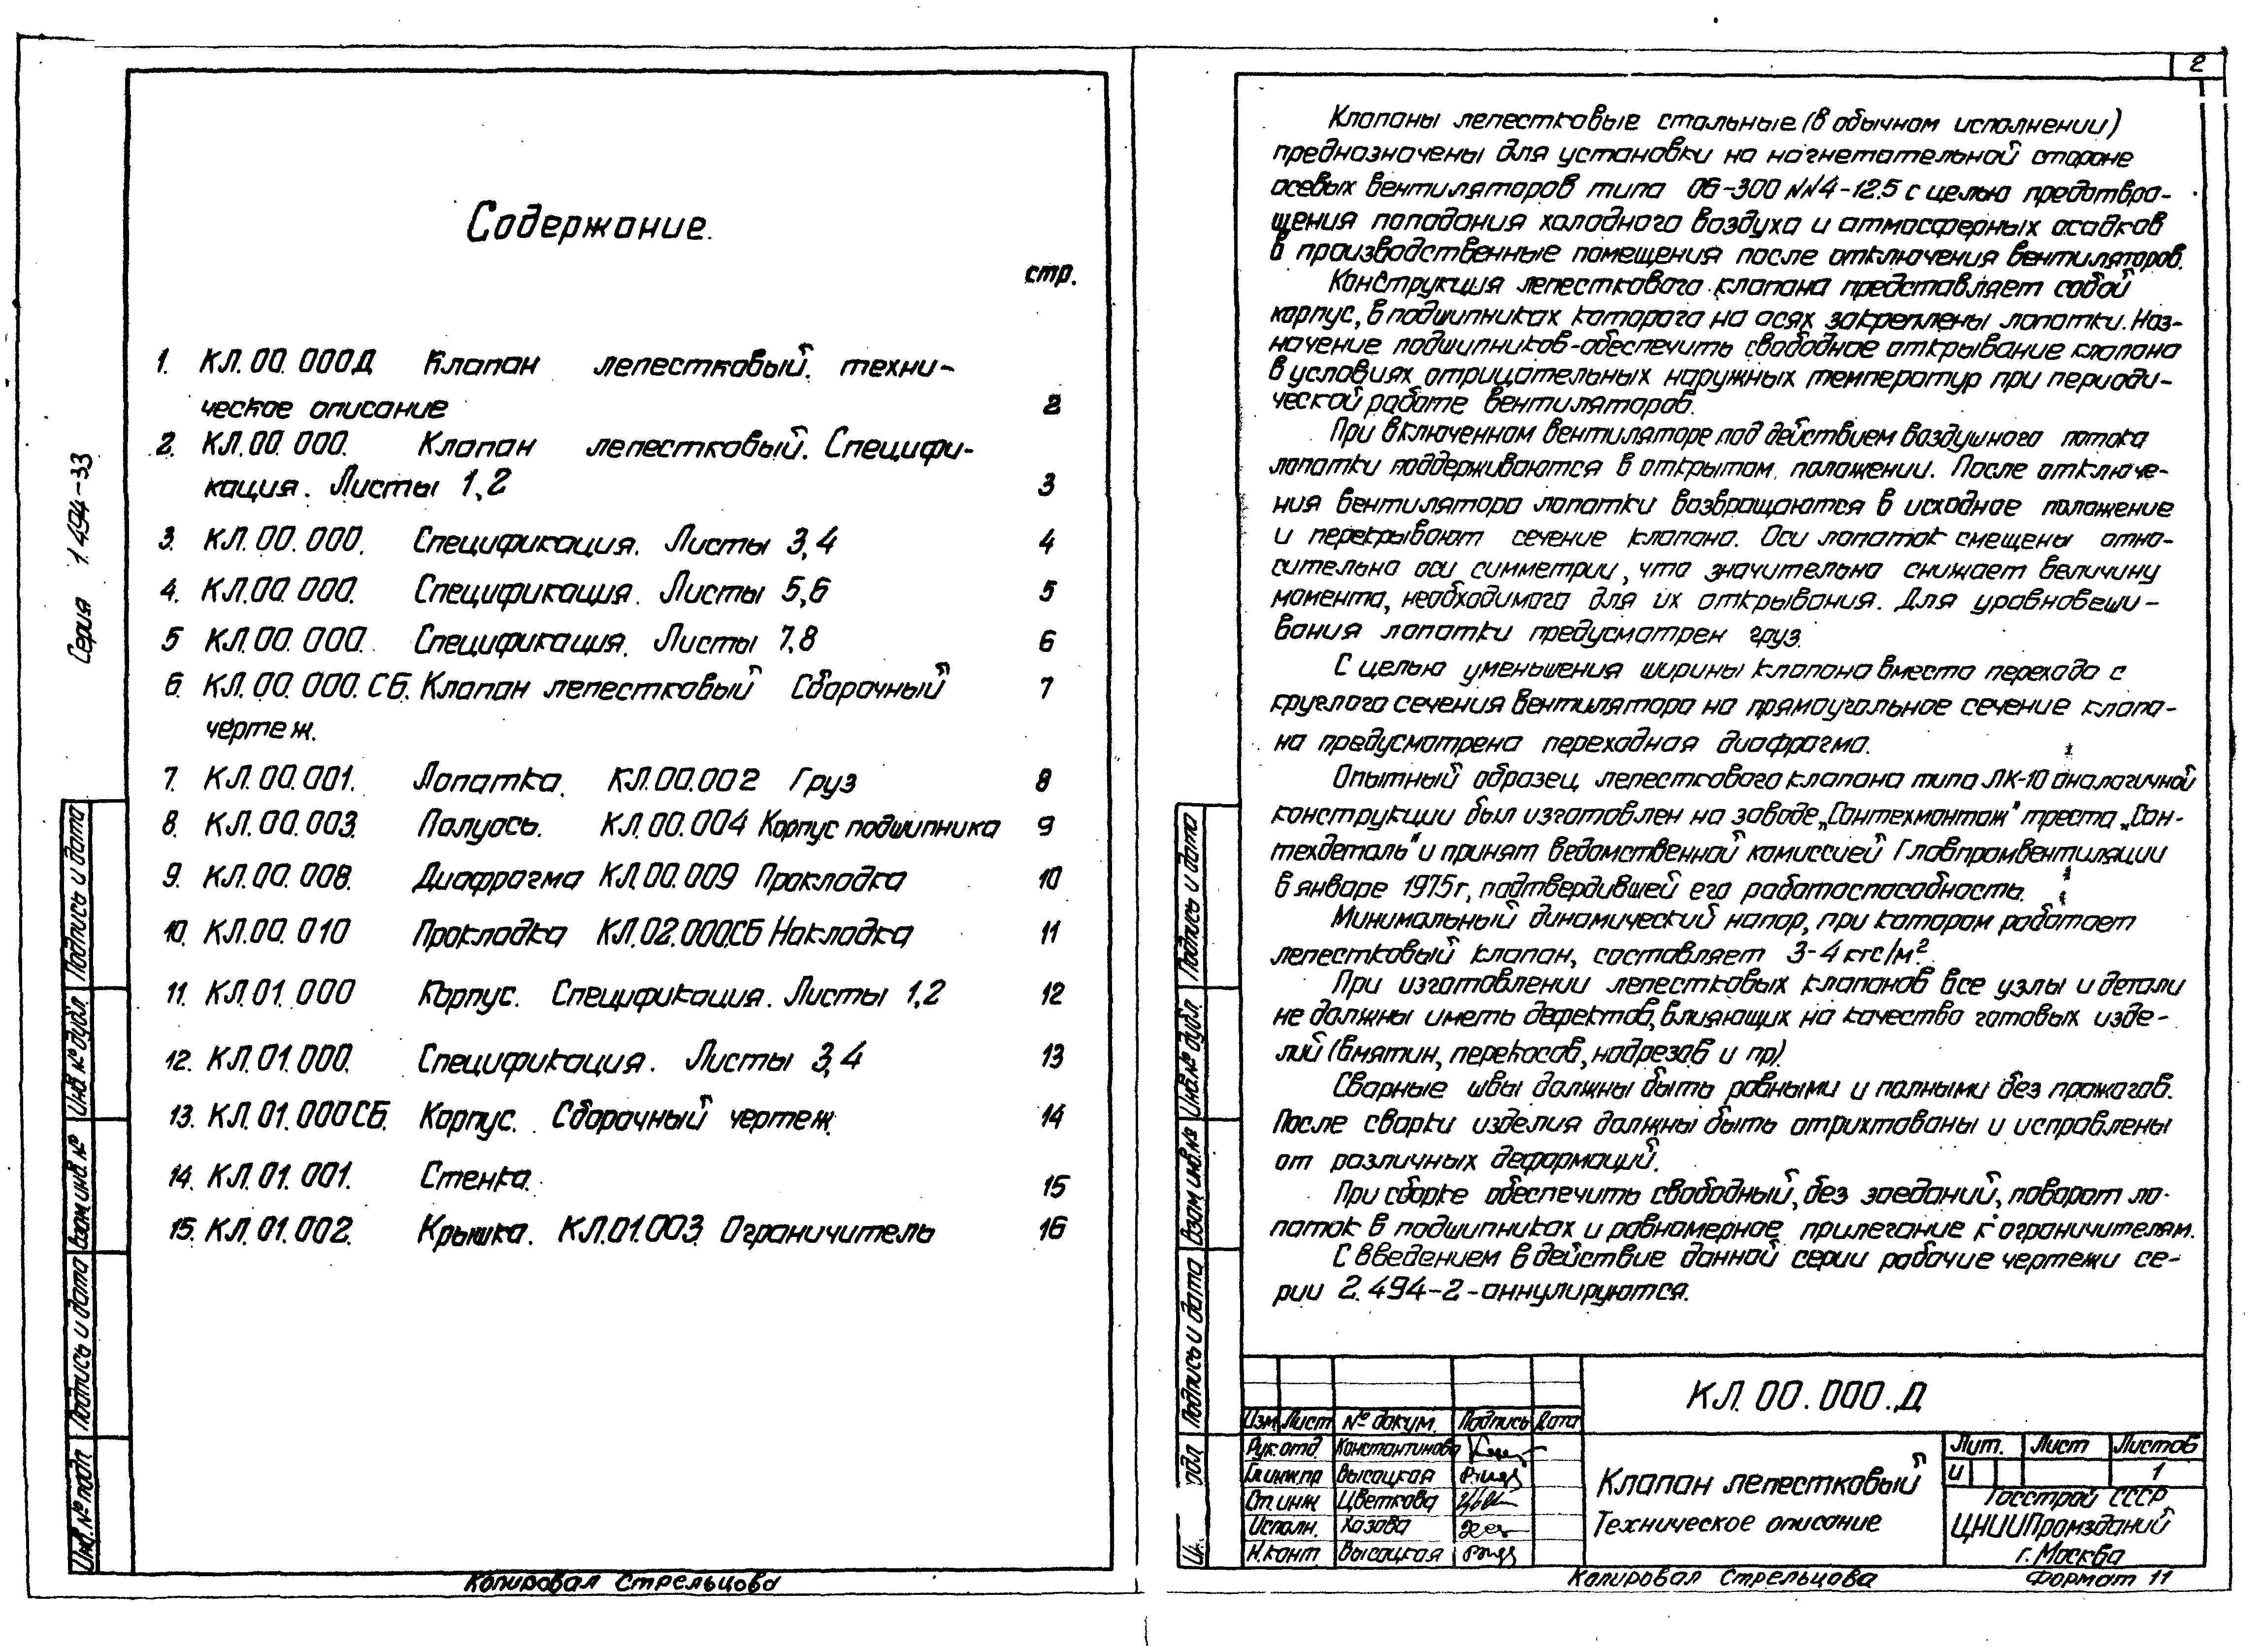 Содержание.
стр.
1. КЛ.00.000Д Клапан лепестковый. техни-
ческое описание 2
2. КЛ.00.000. Клапан лепестковый. Специфи-
кация. Листы 1,2 3
3. КЛ.00.000. Спецификация. Листы 3,4 4
4. КЛ.00.000. Спецификация. Листы 5,6 5
5 КЛ.00.000. Спецификация. Листы 7,8 6
6. КЛ.00.000.СБ. Клапан лепестковый Сборочный 7
чертеж.
7. КЛ.00.001. Лопатка. КЛ.00.002 Груз 8
8. КЛ.00.003. Полуось. КЛ.00.004 Корпус подшипника 9
9. КЛ.00.008. Диафрагма КЛ.00.009 Прокладка 10
10. КЛ.00.010 Прокладка КЛ.02.000СБ Накладка 11
11. КЛ.01.000 Корпус. Спецификация. Листы 1,2 12
12. КЛ.01.000. Спецификация. Листы 3,4 13
13. КЛ.01.000СБ. Корпус. Сборочный чертеж. 14
14. КЛ.01.001. Стенка. 15
15. КЛ.01.002. Крышка. КЛ.01.003. Ограничитель 16
Серия 1.494-33
Подпись и дата
Инв.№ дубл.
Взам.инв.№
Подпись и дата
Инв.№ подп
Копировал Стрельцова
2
Клапаны лепестковые стальные (в обычном исполнении)
предназначены для установки на нагнетательной стороне
осевых вентиляторов типа 06-300 №№4-12.5 с целью предотвра-
щения попадания холодного воздуха и атмосферных осадков
в производственные помещения после отключения вентиляторов.
Конструкция лепесткового клапана представляет собой
корпус, в подшипниках которого на осях закреплены лопатки. Наз-
начение подшипников-обеспечить свободное открывание клапана
в условиях отрицательных наружных температур при периоди-
ческой работе вентиляторов.
При включенном вентиляторе под действием воздушного потока
лопатки поддерживаются в открытом положении. После отключе-
ния вентилятора лопатки возвращаются в исходное положение
и перекрывают сечение клапана. Оси лопаток смещены отно-
сительно оси симметрии, что значительно снижает величину
момента, необходимого для их открывания. Для уравновеши-
вания лопатки предусмотрен груз.
С целью уменьшения ширины клапана вместо перехода с
круглого сечения вентилятора на прямоугольное сечение клапа-
на предусмотрена переходная диафрагма.
Опытный образец лепесткового клапана типа ЛК-10 аналогичной
конструкции был изготовлен на заводе „Сантехмонтаж" треста „Сан-
техдеталь" и принят ведомственной комиссией Главпромвентиляции
в январе 1975г, подтвердившей его работоспособность.
Минимальный динамический напор, при котором работает
лепестковый клапан, составляет 3-4 кгс/м².
При изготовлении лепестковых клапанов все узлы и детали
не должны иметь дефектов, влияющих на качество готовых изде-
лий (вмятин, перекосов, надрезов и пр).
Сварные швы должны быть ровными и полными без прожогов.
После сварки изделия должны быть отрихтованы и исправлены
от различных деформаций.
При сборке обеспечить свободный, без заеданий, поворот ло-
паток в подшипниках и равномерное прилегание к ограничителям.
С введением в действие данной серии рабочие чертежи се-
рии 2.494-2-аннулируются.
Подпись и дата
Инв.№ дубл.
Взам.инв.№
Подпись и дата
подл
КЛ.00.000.Д
Изм Лист № докум. Подпись Дата
Рук.отд. Константинова
Гл.инж.пр Высоцкая
Ст.инж Цветкова
Исполн. Хазова
Н.конт Высоцкая
Клапан лепестковый
Техническое описание
Лит. Лист Листов
И 1
Госстрой СССР
ЦНИИПромзданий
г.Москва
Копировал Стрельцова Формат 11